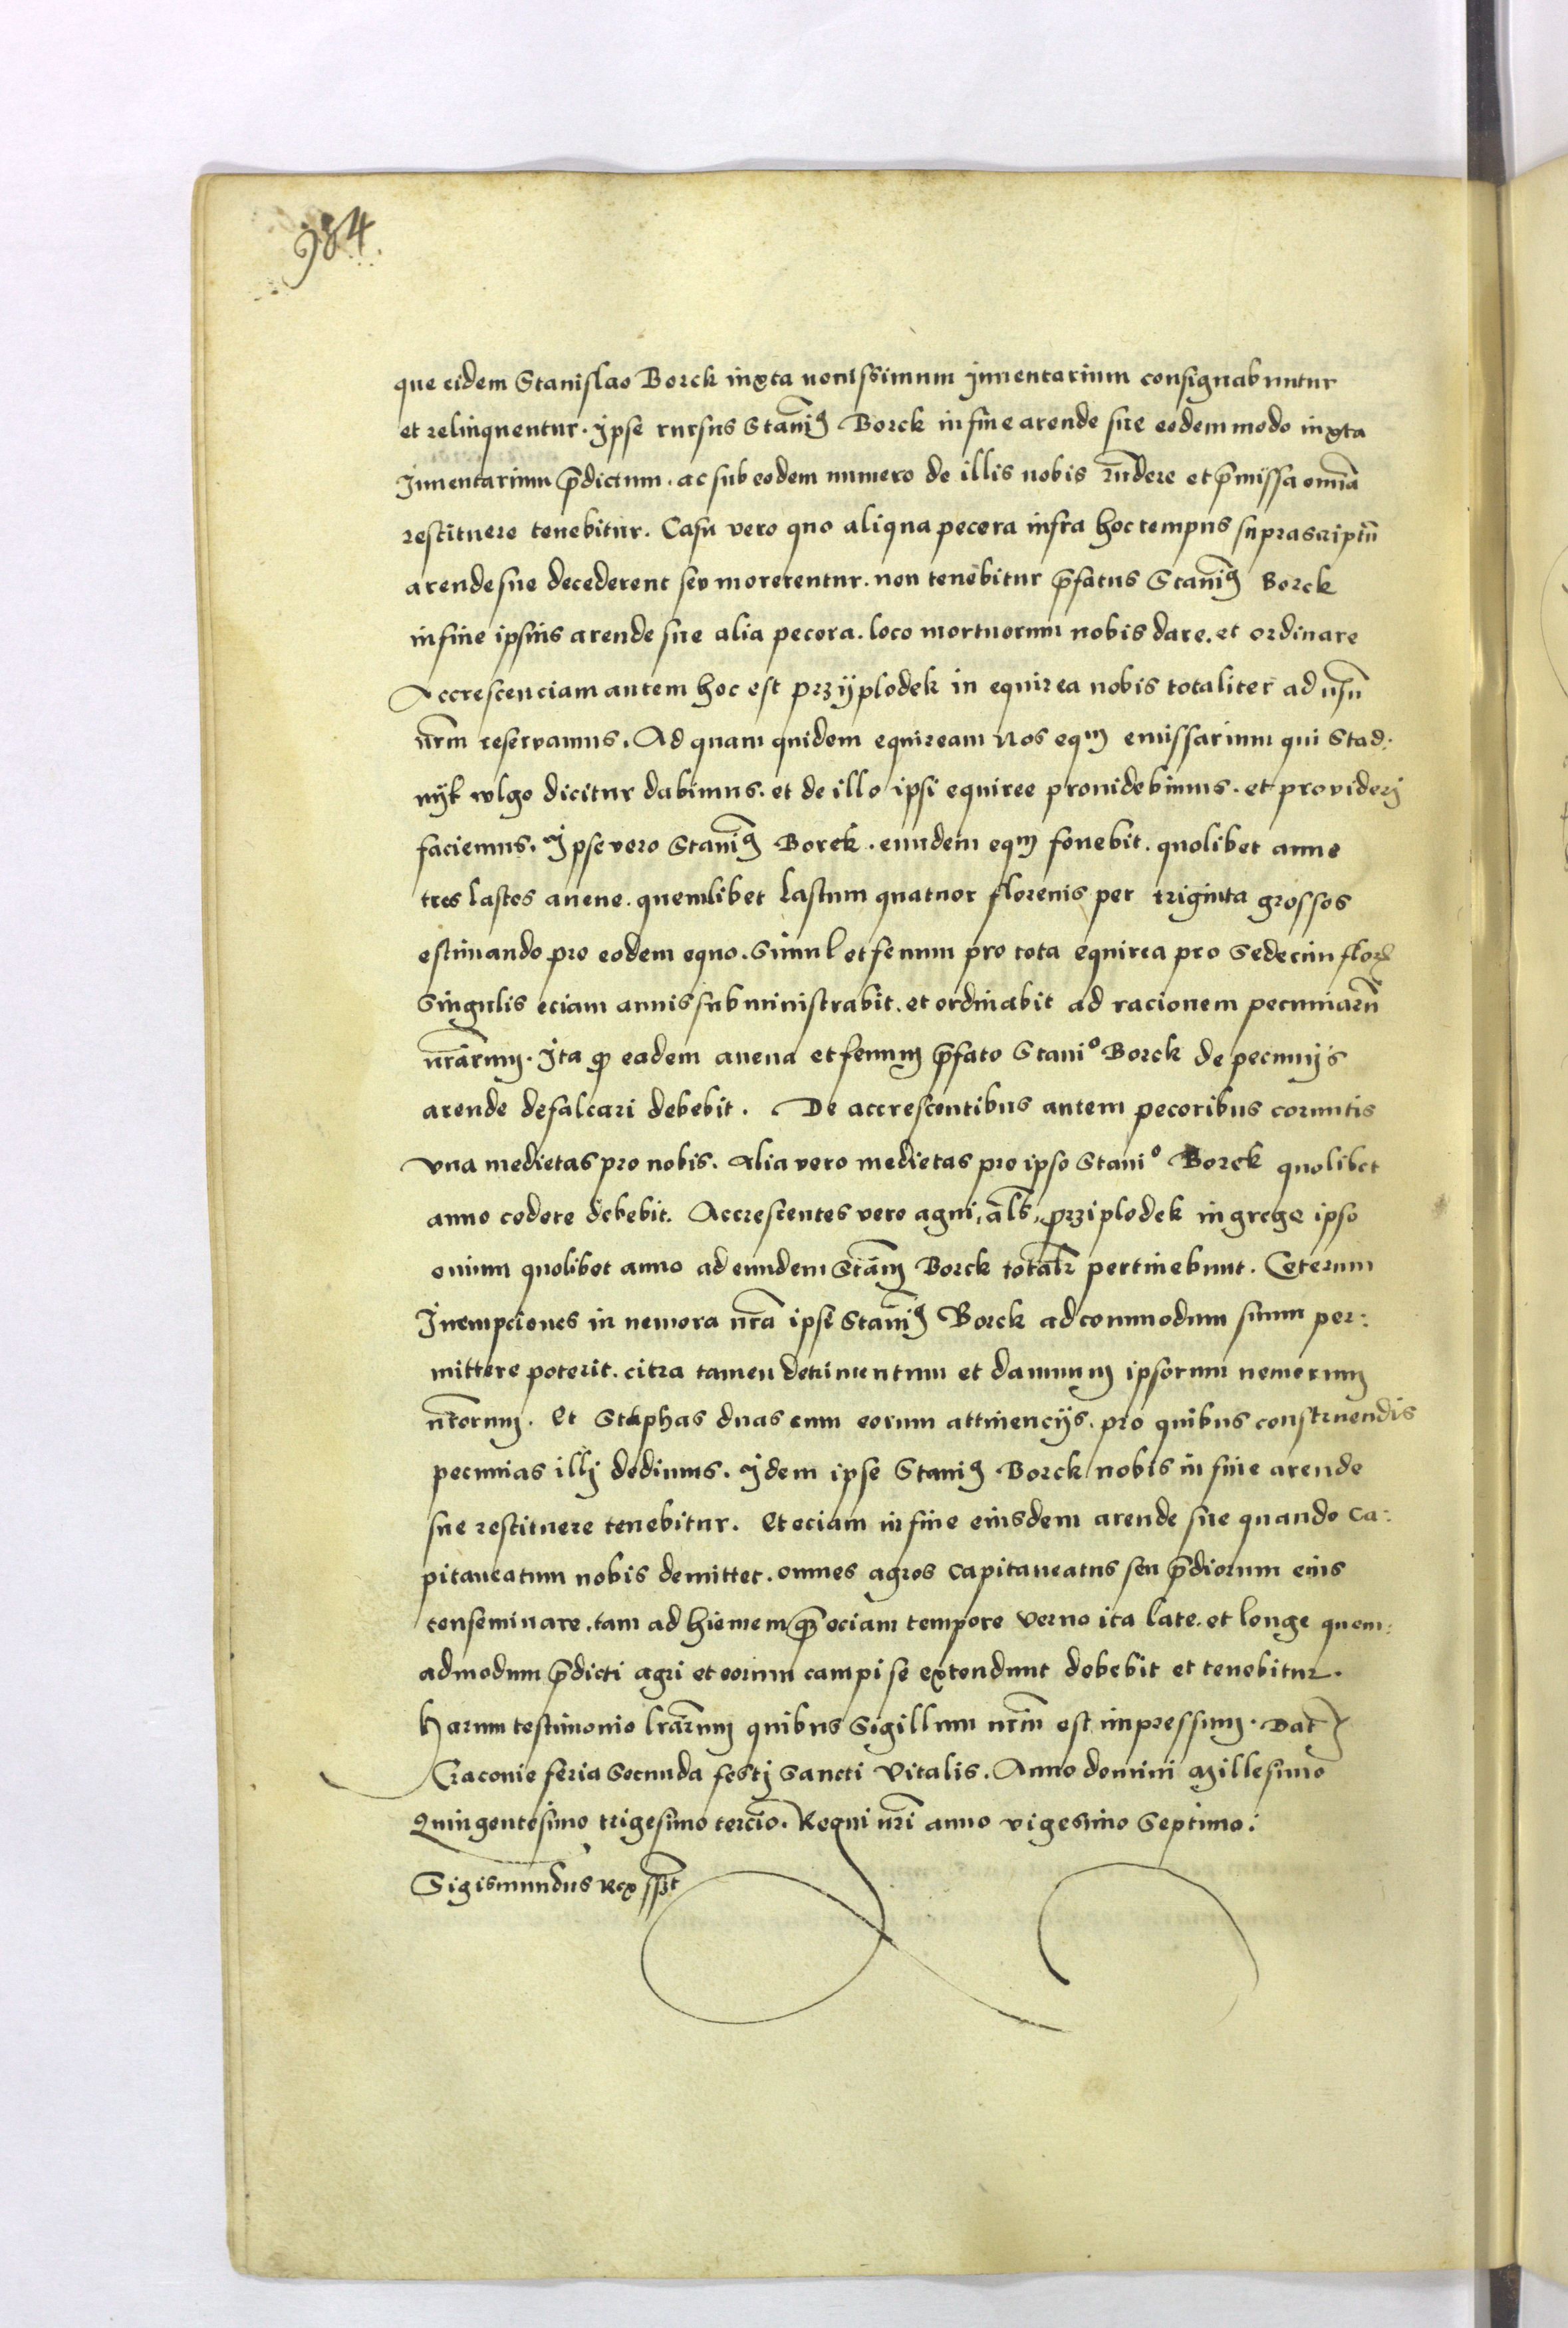 984
que eidem Stanislao Borck iuxta nouissimum Inuentarium consignabuntur
et relinquentur. Ipse rursus Stanīꝰ Borck in fine arende sue eodem modo iuxta
Inuentarium p̄dictum. ac sub eodem numero de illis nobis r̄ndere et p̄missa om̄ia
restituere tenebitur. Casu vero quo aliqua pecora infra hoc tempus suprascriptū
arende sue decederent seu morerentur. non tenebitur p̄fatus Stanīꝰ Borck
in fine ipsius arende sue alia pecora. loco mortuorum nobis dare. et ordinare
Accrescenciam autem hoc est przÿplodek in equirea nobis totaliter ad usū
nr̄m reseruamus. Ad quam quidem equiream Nos eqᵐ emissarium qui Stad:
nÿk wlgo dicitur dabimus. et de illo ipsi equiree prouidebimus. et prouiderj
faciemus. Ipse vero Stanīꝰ Borck. eundem eqᵐ fouebit. quolibet anno
tres lastos auene. quemlibet Lastum quatuor florenis per triginta grossos
estimando pro eodem equo. Simul et fenum pro tota equirea pro Sedecim florꝭ
Singulis eciam annis subministrabit. et ordinabit ad racionem pecuniarū
nr̄arum. Ita ꝙ eadem auena et fenum p̄fato Staniº Borck de pecunijs
arende defalcari debebit. De accrescentibus autem pecoribus cornutis
vna medietas pro nobis. Alia vero medietas pro ipso Staniº Borck quolibet
anno cedere debebit. Accrescentes vero agni, al̄s, prziplodek in grege ipso
ouium quolibet anno ad eundem Stān̄ Borck total̄r pertinebunt. Ceterum
Inempciones in nemora nr̄a ipse Stanīꝰ Borck ad commodum suum per:
mittere poterit. citra tamen detrimentum et damnum ipsorum nemorum
nr̄orum. Et Stuphas duas cum eorum attinencijs. pro quibus construendis
pecunias illj dedimus. Idem ipse Staniꝰ Borck nobis in fine arende
sue restituere tenebitur. Et eciam in fine eiusdem arende sue quando Ca:
pitaneatum nobis demittet. omnes agros Capitaneatus seu p̄diorum eius
conseminare. tam ad hiemem ꝙ̄ eciam tempore verno ita late. et longe quem:
admodum p̄dicti agri et eorum campi se extendunt debebit et tenebitur.
Harum testimonio lr̄arum quibus Sigillum nr̄m est impressum. Datꝭ
Cracouie feria Secunda festj Sancti Vitalis. Anno domini Millesimo
Quingentesimo trigesimo tercio. Regni nr̄i anno vigesimo Septimo:
Sigismundus Rex sszt